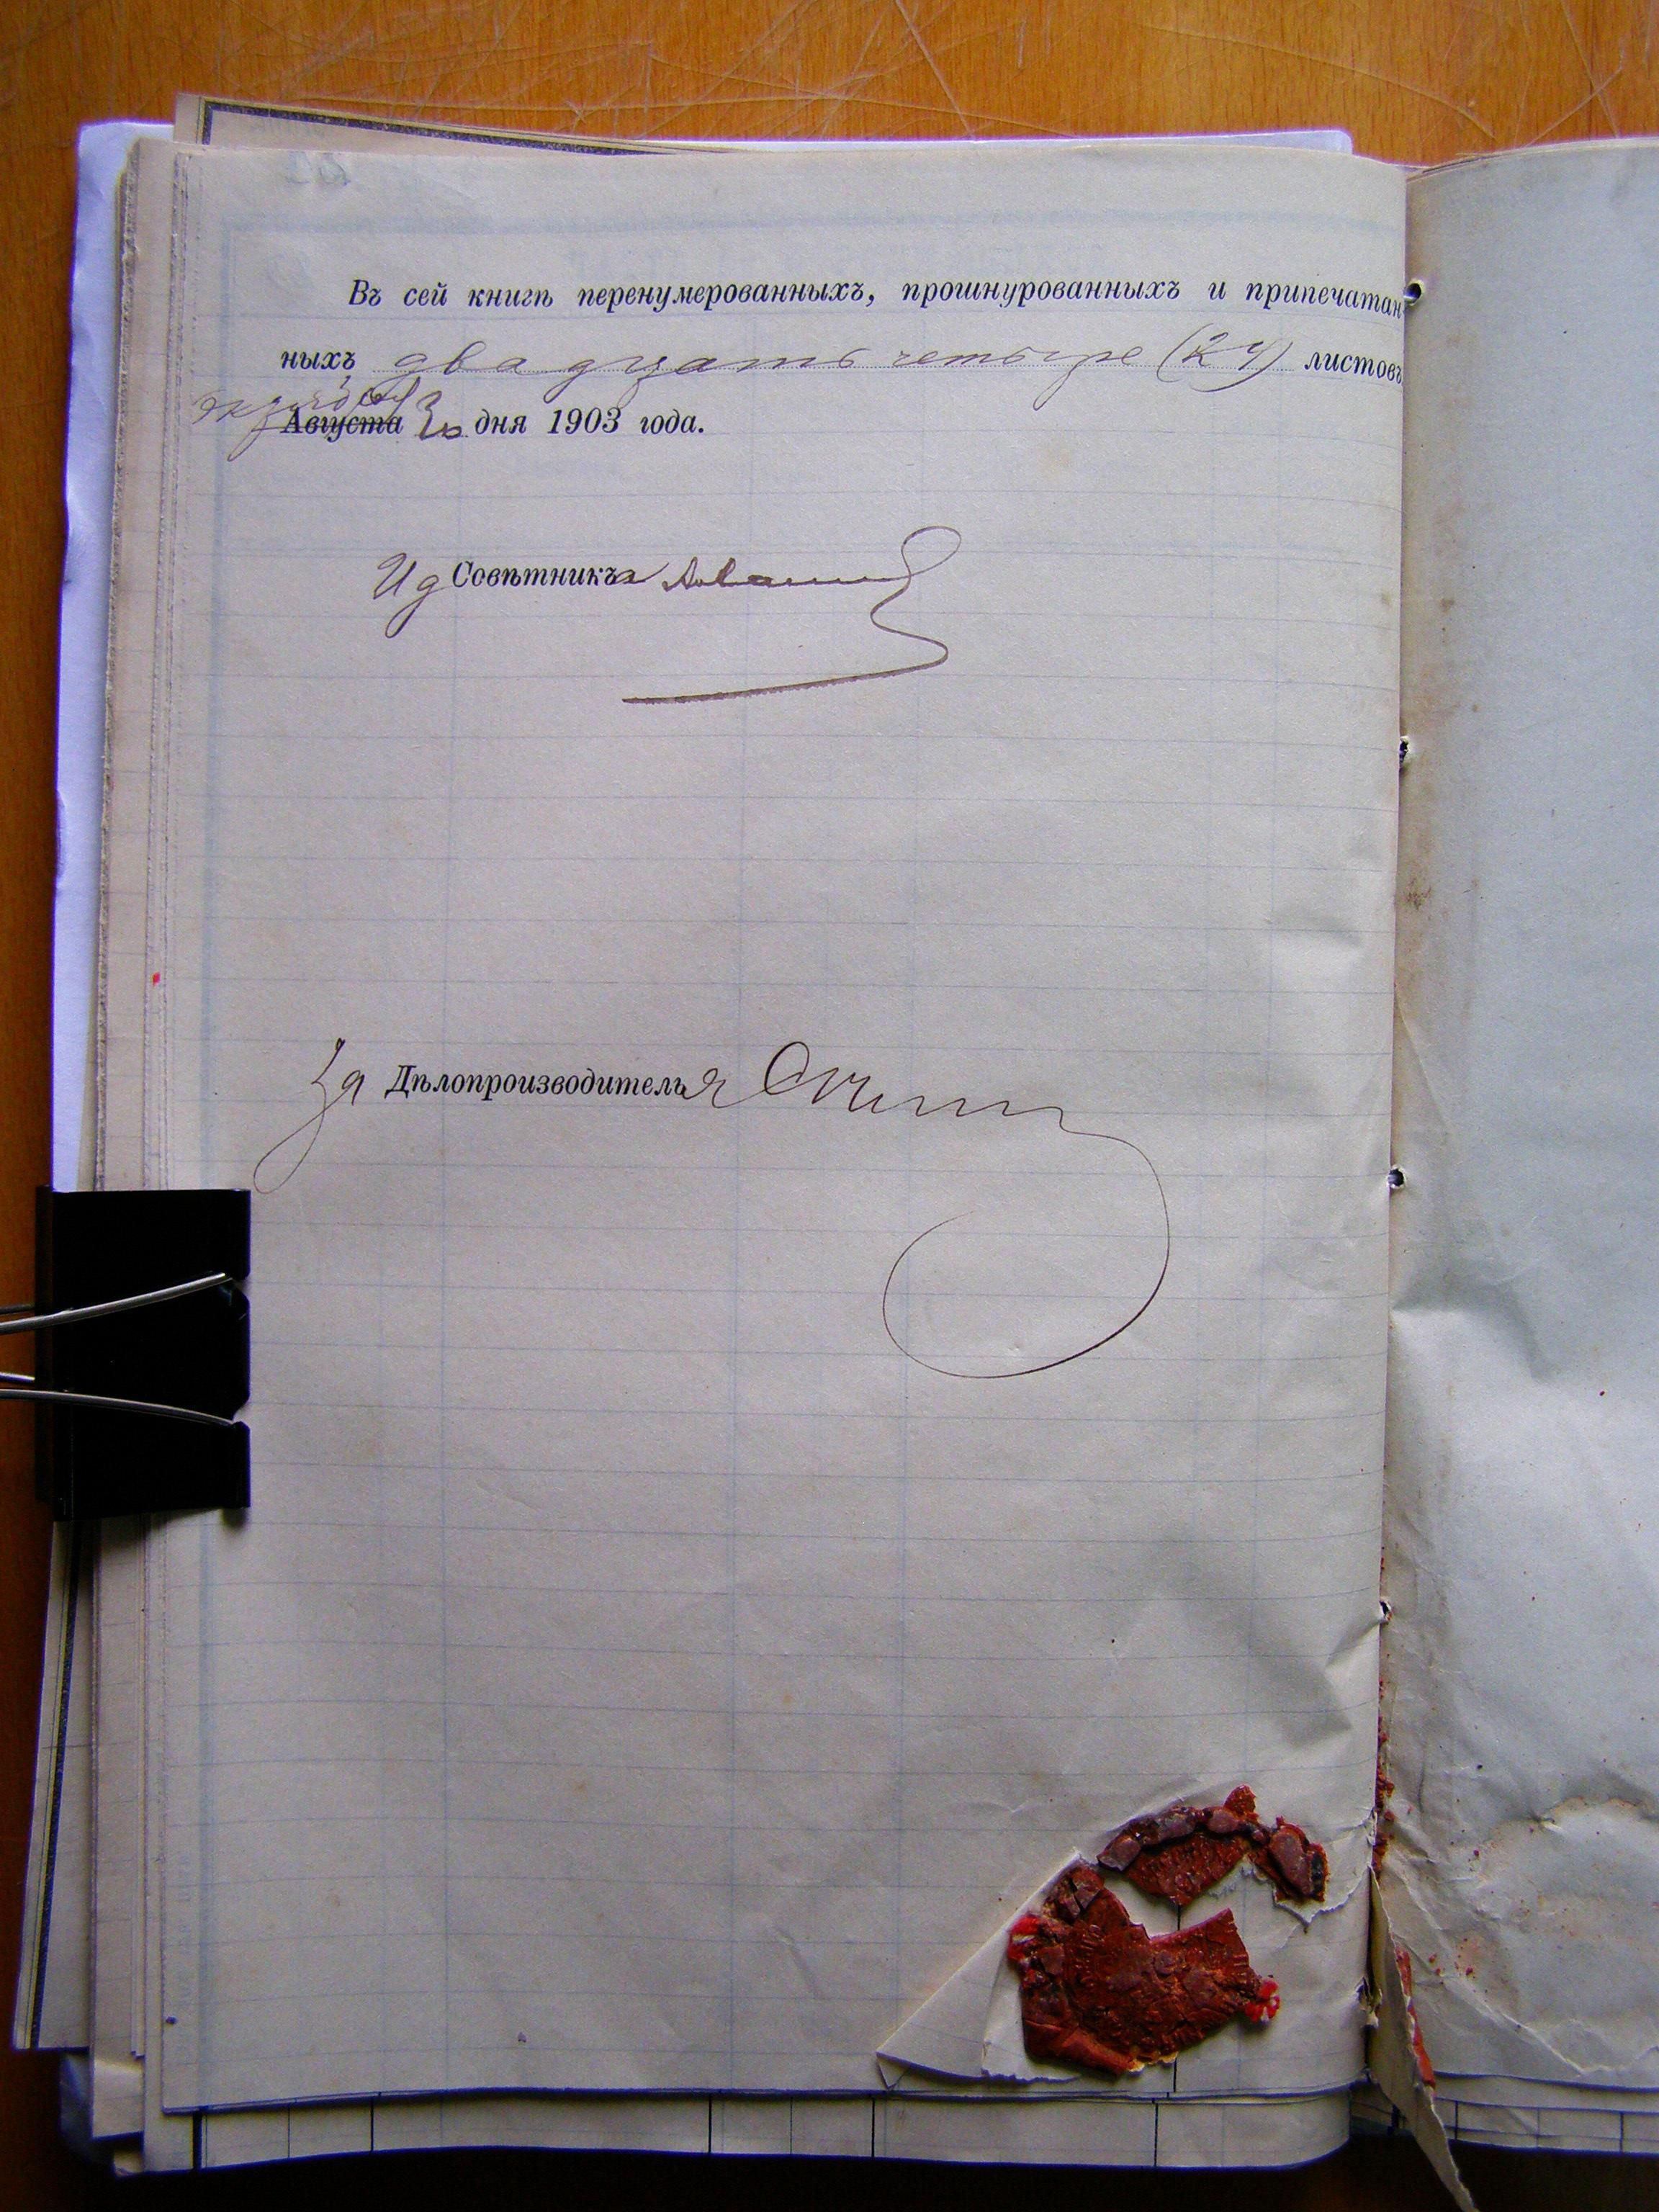 Въ сей книгѣ перенумерованныхъ, прошнурованныхъ и припечатан-
ныхъ двадцать четыре (24) листовъ
Августа дня 1903 года.
И д Совѣтника
За Дѣлопроизводителя